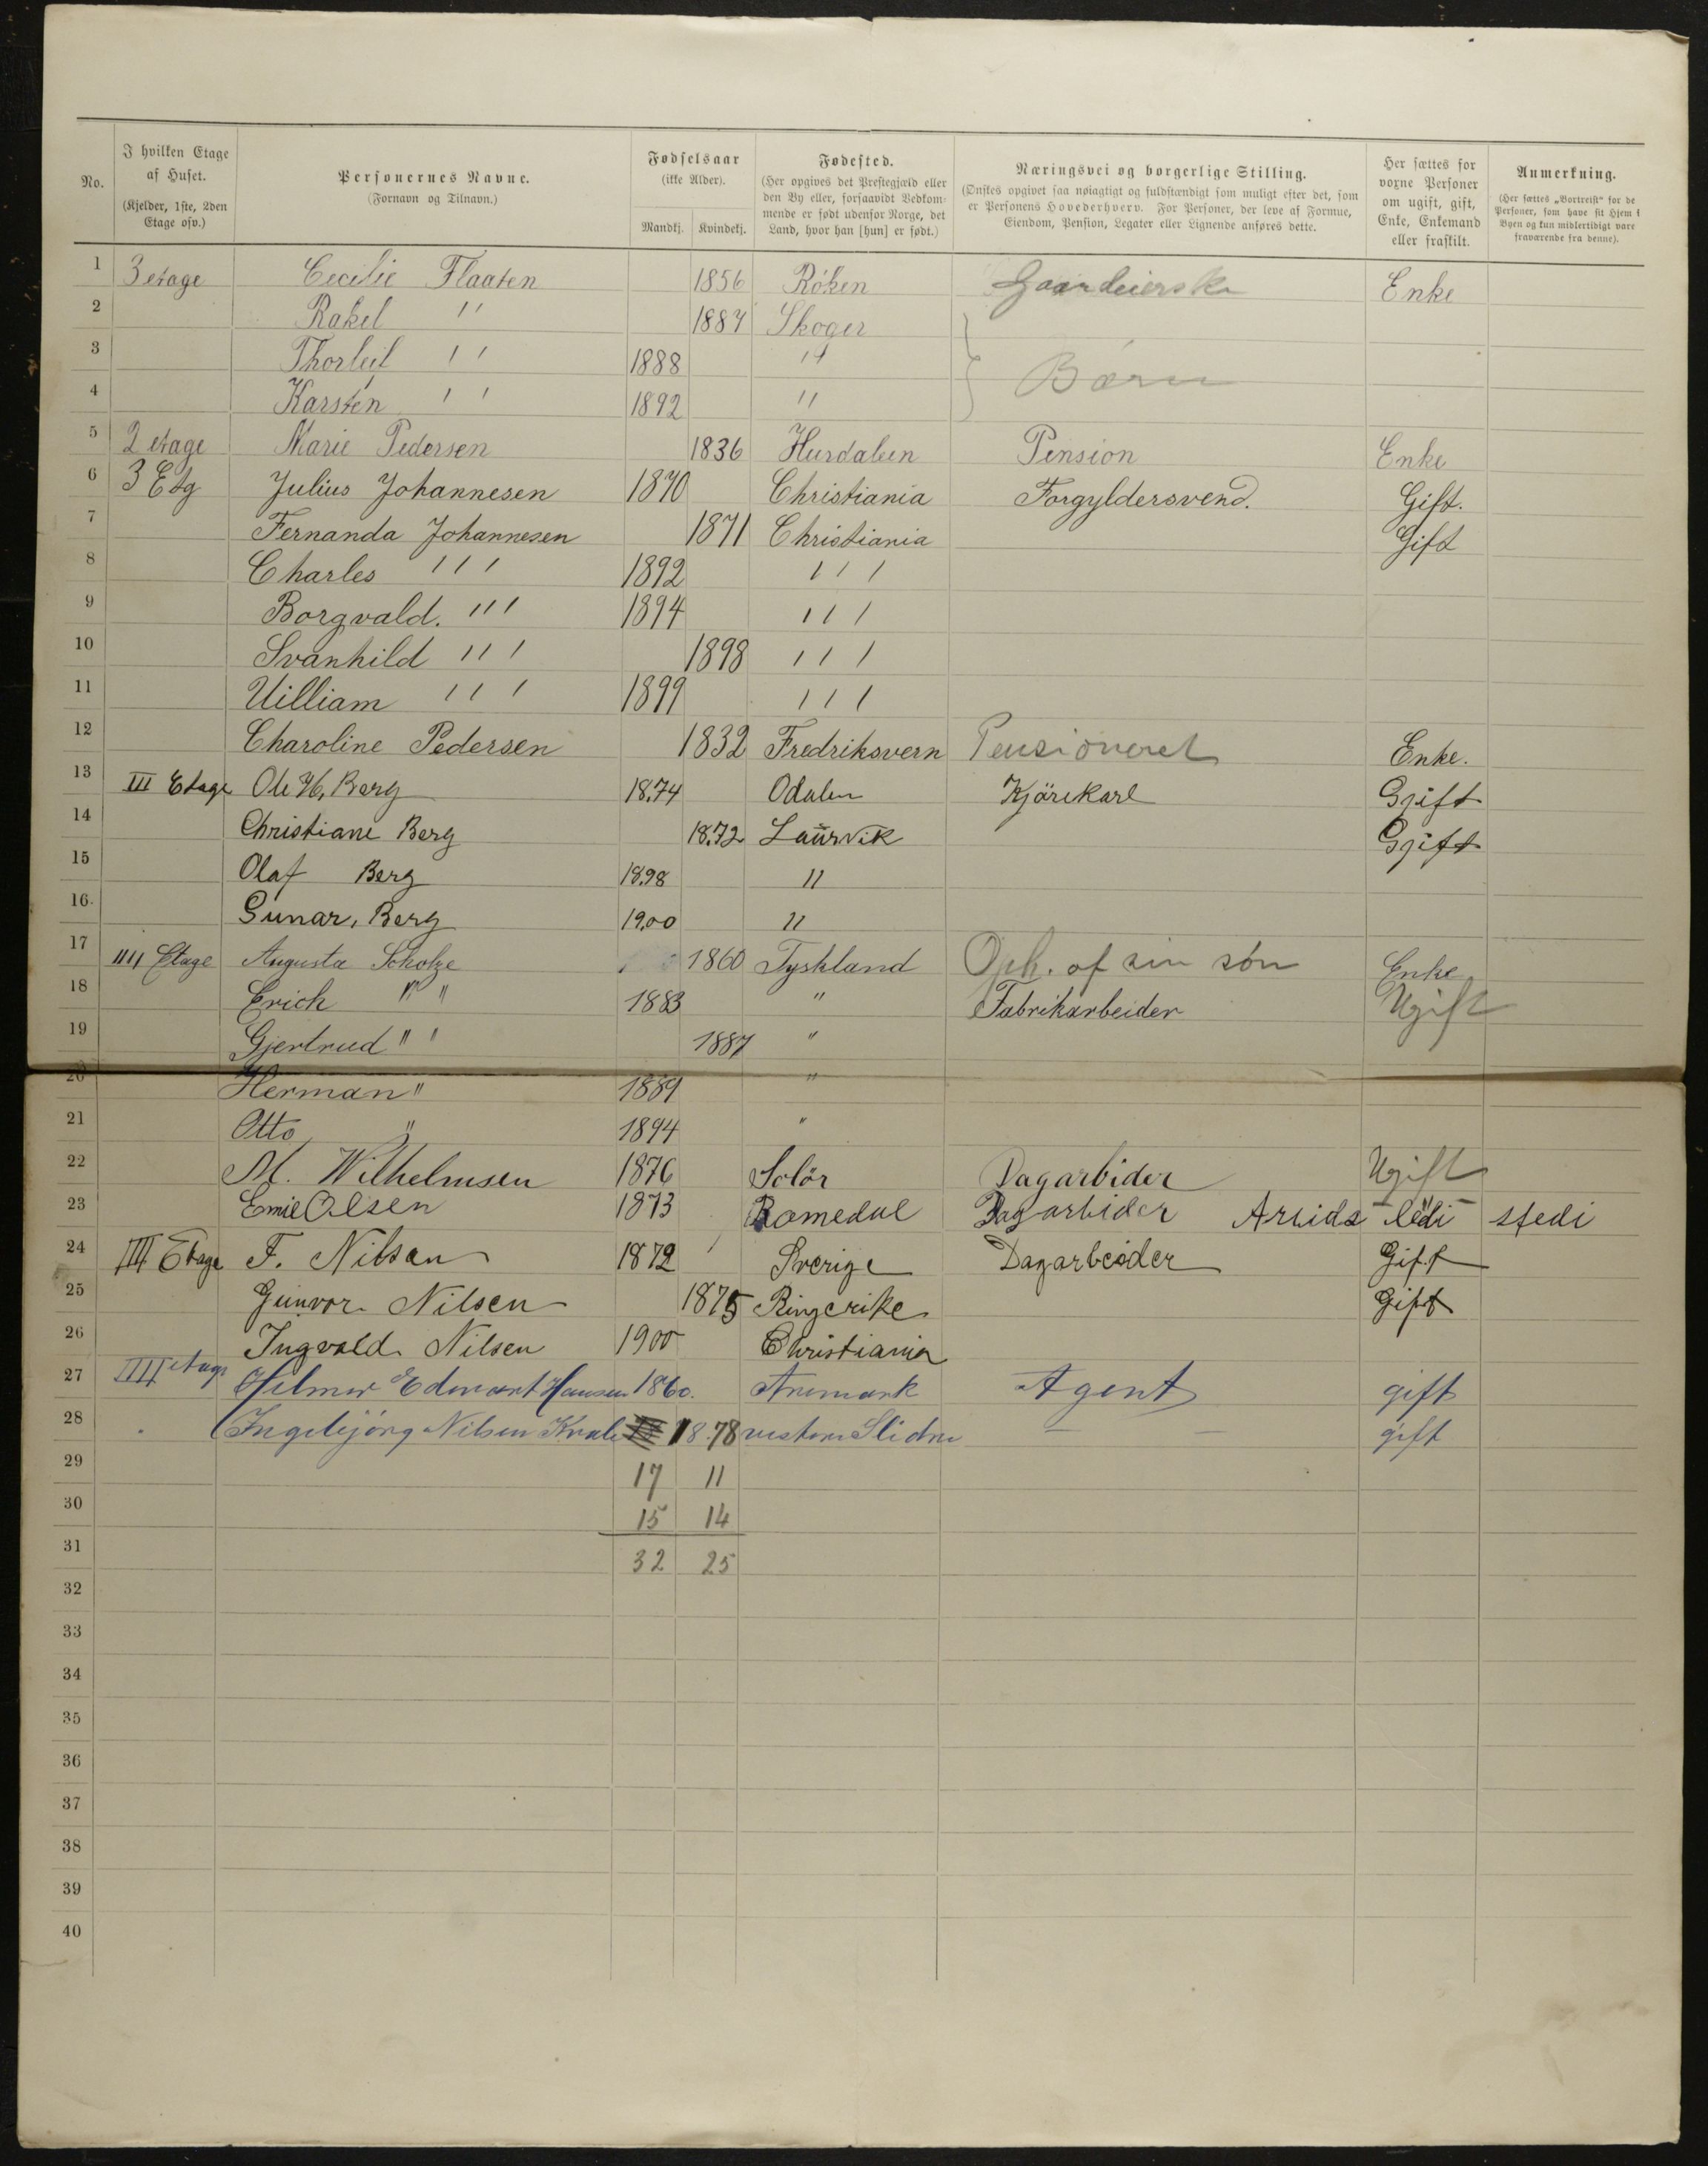 No.
I hvilken Etage af Huset. (Kjelder, 1ste, 2den Etage osv.)
Personernes Navne. (Fornavn og Tilnavn.)
Fødselsaar (ikke Alder). Mandkj. Kvindekj.
Fødested. (Her opgives det Prestegjæld eller den By eller, forsaavidt Vedkommende er født udenfor Norge, det Land, hvor han [hun] er født.)
Næringsvei og borgerlige Stilling. (Ønskes opgivet saa nøiagtigt og fuldstændigt som muligt efter det, som er Personens Hovederhverv. For Personer, der leve af Formue, Eiendom, Pension, Legater eller Lignende anføres dette.
Her sættes for voxne Personer om ugift, gift, Enke, Enkemand eller fraskilt.
Anmerkning. (Her sættes „Bortreist“ for de Personer, som have sit Hjem i Byen og kun midlertidigt vare fraværende fra denne).
1 3 etage Cecilie Flaaten 1856 Röken Gaardeierske Enke
2 Rakel " 1887 Skoger
3 Thorleif " 1888 " } Børn
4 Karsten " 1892 "
5 2 etage Marie Pedersen 1836 Hurdalen Pension Enke
6 3 Etg Julius Johannesen 1870 Christiania Forgyldersvend. Gift.
7 Fernanda Johannesen 1871 Christiania Gift
8 Charles ''' 1892 '''
9 Borgvald. ''' 1894 '''
10 Svanhild ''' 1898 '''
11 Uilliam ''' 1899 '''
12 Charoline Pedersen 1832 Fredriksvern Pensioneret Enke.
13 III Etage Ole H, Berg 18.74 Odalen Kjörekarl Gjift
14 Christiane Berg 18.72 Laurvik Gjift
15 Olaf Berg 18.98 "
16 Gunar, Berg 19.00 "
17 IIII Etage Augusta Scholze 1860 Tyskland Oph. af sin sön Enke
18 Erich " " 1883 " Fabrikarbeider Ugift
19 Gjertrud " ' 1887 "
20 Herman " 1889 "
21 Otto " 1894 "
22 M. Wilhelmsen 1876 Solör Dagarbider Ugift
23 Emil Olsen 1873 Romedal Dagarbider Arbids ledi stedi
24 IIII Etage F. Nilsen 1872 Sverige Dagarbeider Gift
25 Gunvor Nilsen 1875 Ringerike Gift
26 Ingvald Nilsen 1900 Christiania
27 IIII etage Hilmar Edevart Hansen 1860. Aremark Agent gift
28 Ingebjörg Nilsen 18.78 vestre Slidre — — gift
29 17 11
30 15 14
31 32 25
32
33
34
35
36
37
38
39
40